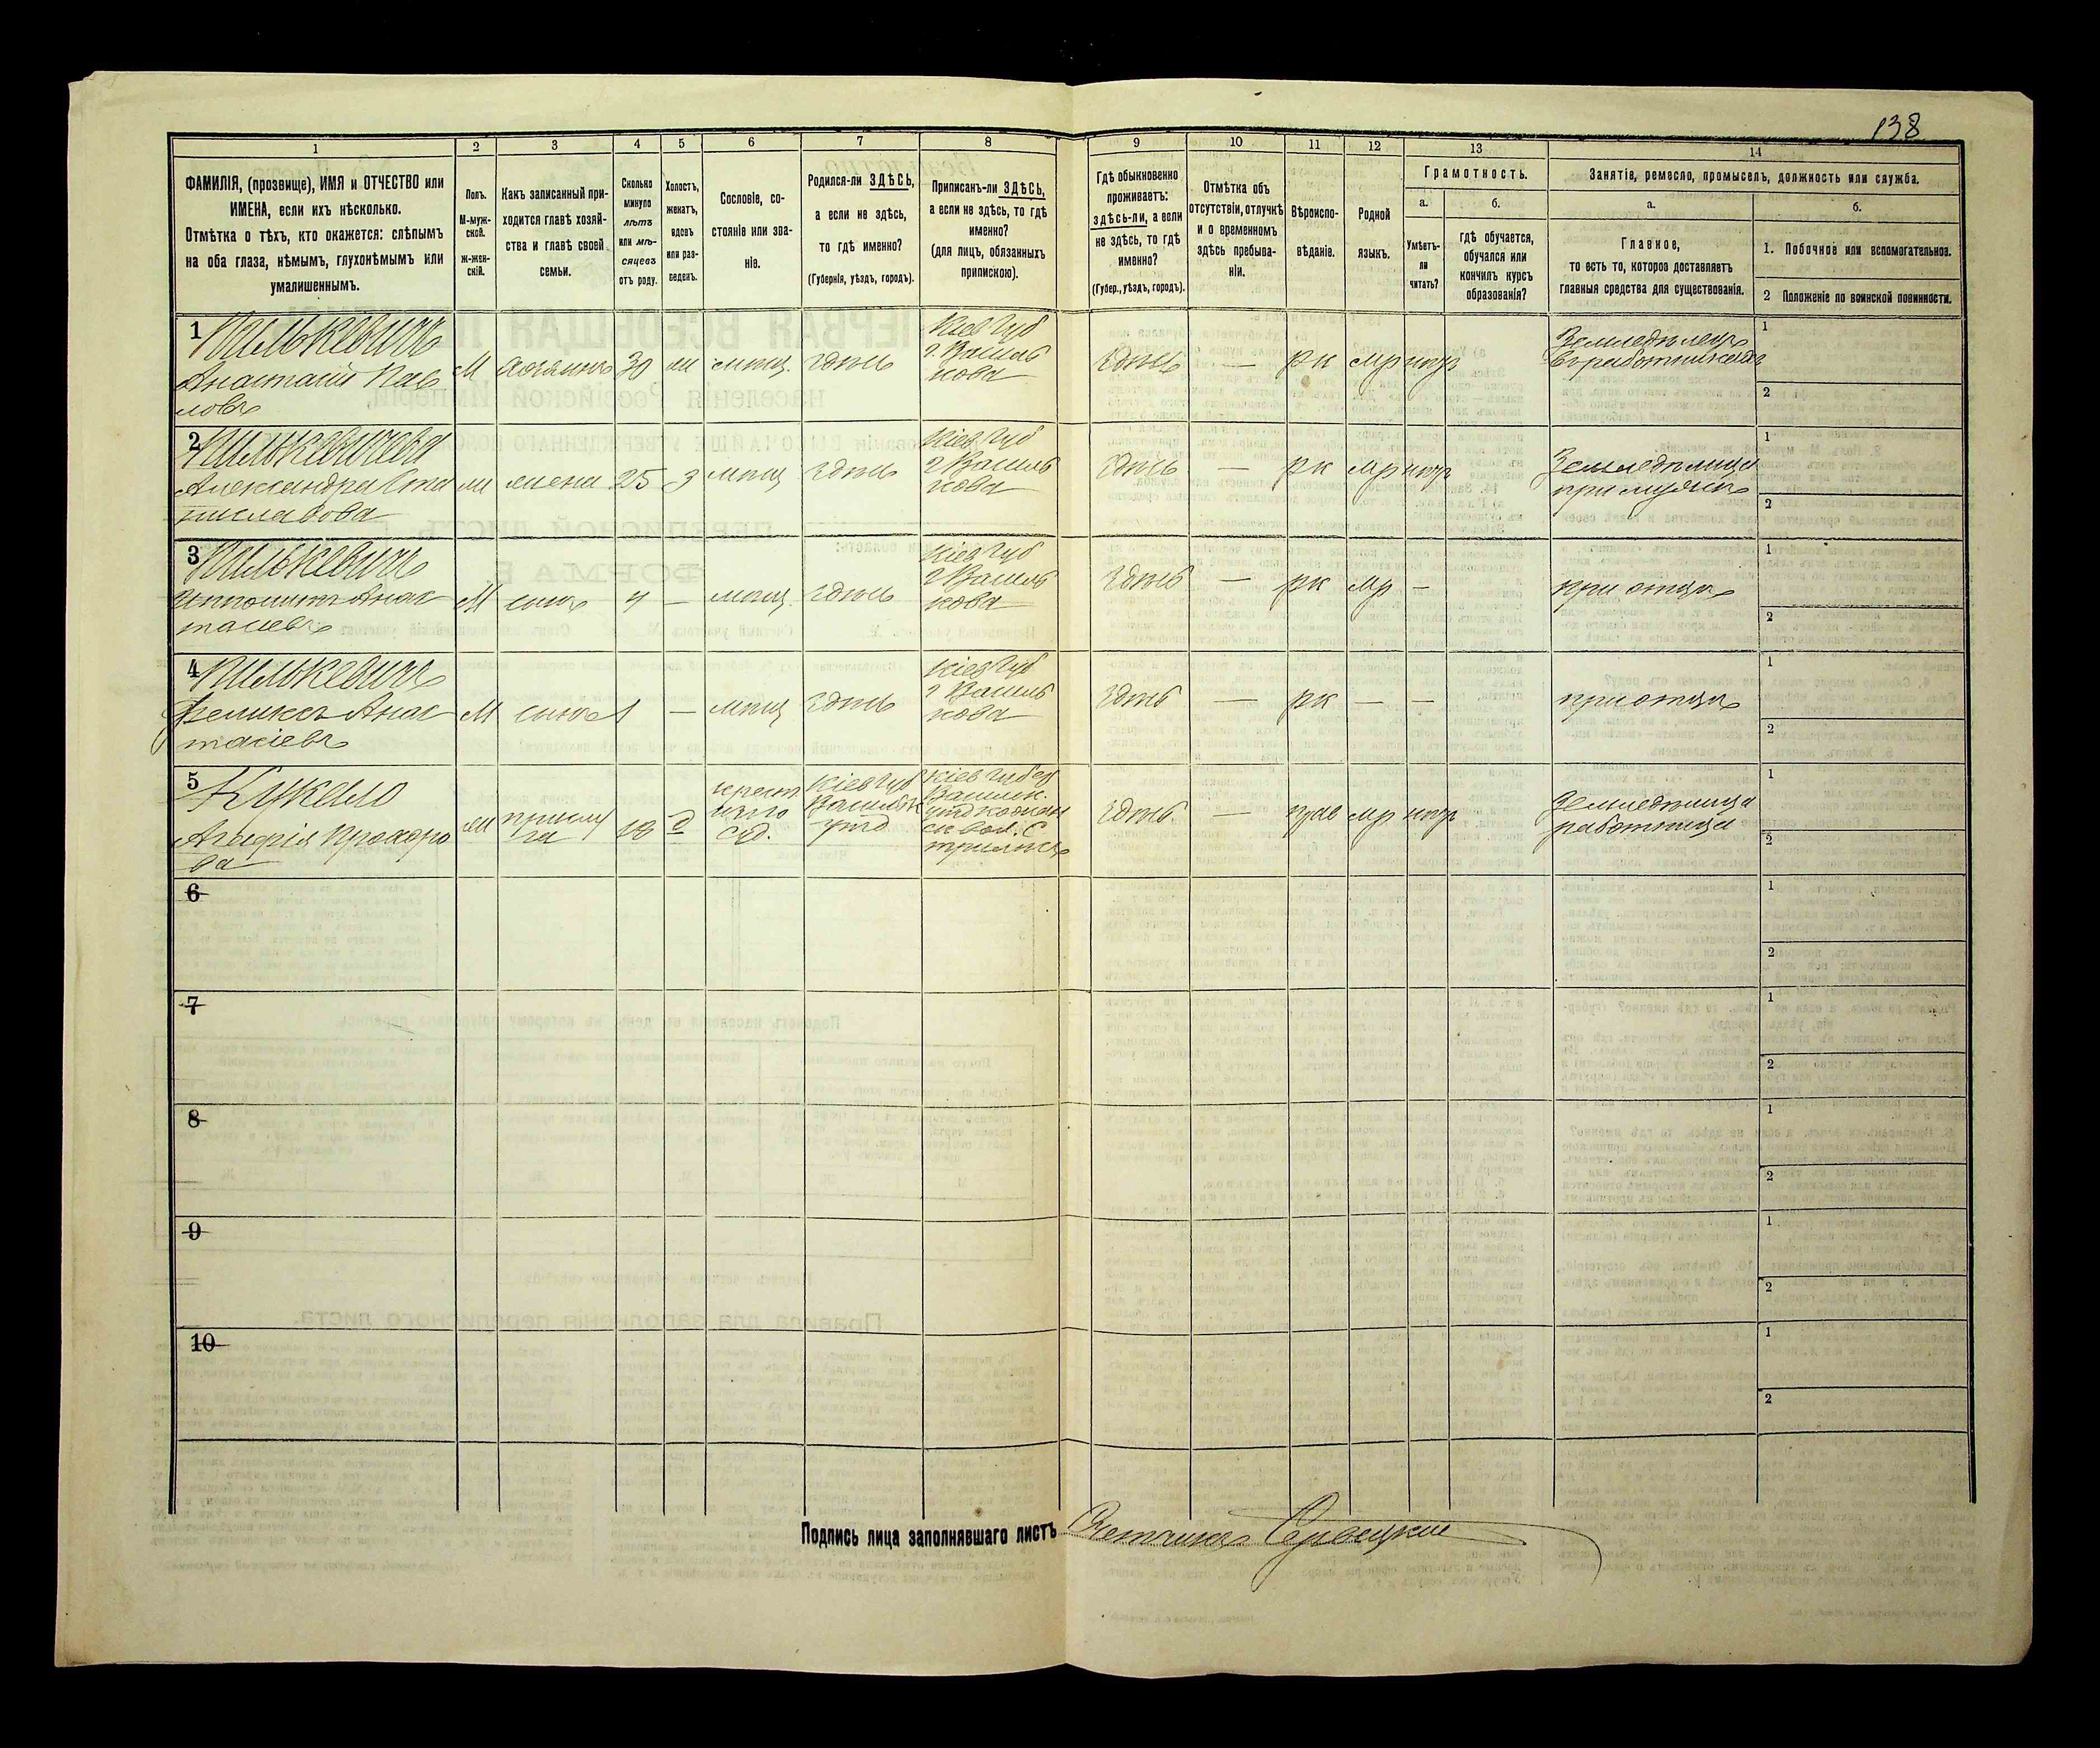 138
1
2
3
4
5
6
7
8
9
10
11
12
13
14
ФАМИЛІЯ, (прозвище), ИМЯ и ОТЧЕСТВО или
ИМЕНА, если ихъ нѣсколько.
Отмѣтка о тѣхъ, кто окажется: слѣпымъ
на оба глаза, нѣмымъ, глухонѣмымъ или
умалишеннымъ.
Полъ.
М-муж-
ской.
ж-жен-
скій.
Какъ записанный при-
ходится главѣ хозяй-
ства и главѣ своей
семьи.
Сколько
минуло
лѣтъ
или мѣ-
сяцевъ
отъ роду.
Холостъ,
женатъ,
вдовъ
или раз-
веденъ.
Сословіе, со-
стояніе или зва-
ніе.
Родился-ли ЗДѢСЬ,
а если не здѣсь,
то гдѣ именно?
(Губернія, уѣздъ, городъ).
Приписанъ-ли ЗДѢСЬ,
а если не здѣсь, то гдѣ
именно?
(для лицъ, обязанныхъ
припискою).
Гдѣ обыкновенно
проживаетъ:
здѣсь-ли, а если
не здѣсь, то гдѣ
именно?
(Губер., уѣздъ, городъ).
Отмѣтка объ
отсутствіи, отлучкѣ
и о временномъ
здѣсь пребыва-
ніи.
Вѣроиспо-
вѣданіе.
Родной
языкъ.
Грамотность.
а.
б.
Умѣетъ-
ли
читать?
гдѣ обучается,
обучался или
кончилъ курсъ
образованія?
Занятіе, ремесло, промыселъ, должность или служба.
а.
б.
Главное,
то есть то, которое доставляетъ
главныя средства для существованія.
1. Побочное или вспомогательное.
2 Положеніе по воинской повинности.
1
Пилькевичъ
Анастасій Пав
ловъ
М
хозяинъ
30
ж
мѣщ.
здѣсь
Кіев Губ
г. Василь
кова
здѣсь
—
рк
мр
нѣтъ
Земледѣлецъ
въ работникахъ
1
2
2
Пилькевичева
Александра Ста
ниславова
ж
жена
25
З
мѣщ
здѣсь
Кіев Губ
г Василь
кова
здѣсь
—
рк
мр
нѣтъ
Земледѣлица
при мужѣ
1
2
3
Пилькевичъ
Ипполитъ Анас
тасіевъ
М
сынъ
4
—
мѣщ.
здѣсь
Кіев Губ
г Василь
кова
здѣсь
—
рк
мр
—
при отцѣ
1
2
4
Пилькевичъ
Феликсъ Анас
тасіевъ
М
сынъ
1
—
мѣщ
здѣсь
Кіев Губ
г Василь
кова
здѣсь
—
рк
—
—
при отцѣ
1
2
5
Агафія
ва
ж
прислу
га
18
д
Кіев Губ
уѣзд
Кіев Губер
здѣсь
—
прав
мр
нѣтъ
Земледѣлица
работница
1
2
6
1
2
7
1
2
8
1
2
9
1
2
10
1
2
Подпись лица заполнявшаго листъ